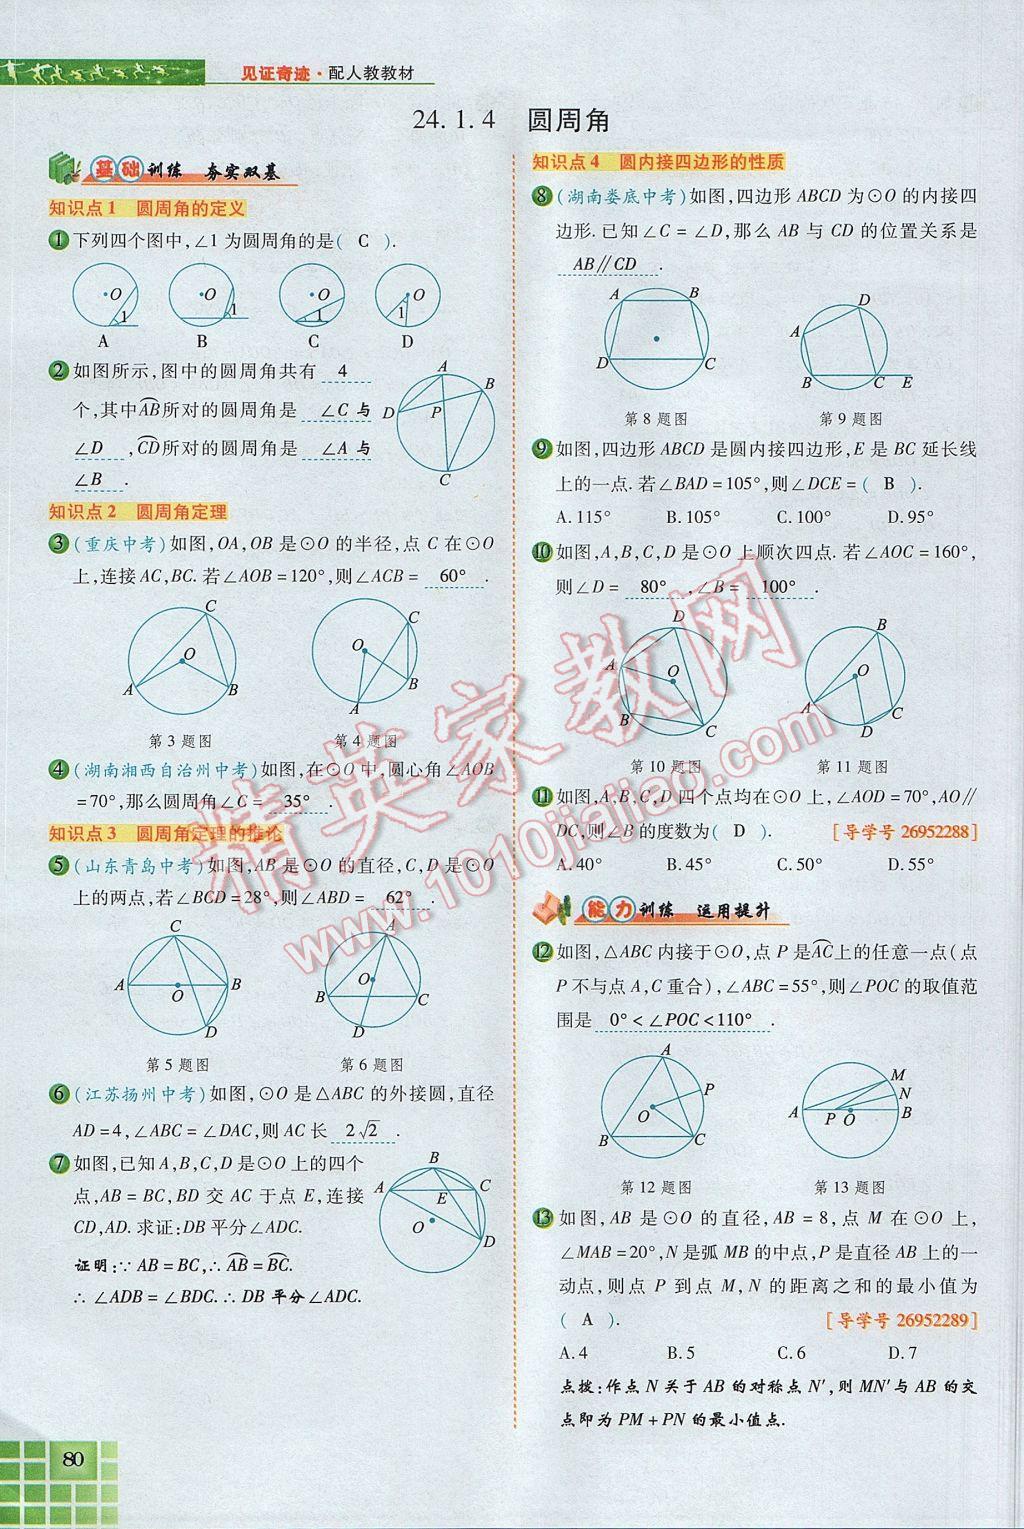 见证奇迹·配人教教材
24.1.4 圆周角
基础训练 夯实双基
知识点1 圆周角的定义
1 下列四个图中,∠1为圆周角的是( C ).
O 1 O 1 O 1 O 1
A B C D
2 如图所示,图中的圆周角共有 4
个,其中AB所对的圆周角是 ∠C 与
∠D ,CD所对的圆周角是 ∠A 与
∠B .
A B D P C
知识点2 圆周角定理
3 (重庆中考)如图,OA,OB是⊙O的半径,点C在⊙O
上,连接AC,BC.若∠AOB=120°,则∠ACB= 60° .
C O A B
C O B A
第3题图 第4题图
4 (湖南湘西自治州中考)如图,在⊙O中,圆心角∠AOB
=70°,那么圆周角∠C= 35° .
知识点3 圆周角定理的推论
5 (山东青岛中考)如图,AB是⊙O的直径,C,D是⊙O
上的两点,若∠BCD=28°,则∠ABD= 62° .
C A O B D
A O B C D
第5题图 第6题图
6 (江苏扬州中考)如图,⊙O是△ABC的外接圆,直径
AD=4,∠ABC=∠DAC,则AC长 2√2 .
7 如图,已知A,B,C,D是⊙O上的四个
点,AB=BC,BD交AC于点E,连接
CD,AD.求证:DB平分∠ADC.
证明:∵AB=BC,∴AB=BC.
∴∠ADB=∠BDC.∴DB平分∠ADC.
B A E C O D
80
知识点4 圆内接四边形的性质
8 (湖南娄底中考)如图,四边形ABCD为⊙O的内接四
边形.已知∠C=∠D,那么AB与CD的位置关系是
AB∥CD .
A B D C
D A B C E
第8题图 第9题图
9 如图,四边形ABCD是圆内接四边形,E是BC延长线
上的一点.若∠BAD=105°,则∠DCE=( B ).
A.115° B.105° C.100° D.95°
10 如图,A,B,C,D是⊙O上顺次四点.若∠AOC=160°,
则∠D= 80° ,∠B= 100° .
D A O B C
B O A D C
第10题图 第11题图
11 如图,A,B,C,D四个点均在⊙O上,∠AOD=70°,AO∥
DC,则∠B的度数为( D ). [导学号 26952288]
A.40° B.45° C.50° D.55°
能力训练 运用提升
12 如图,△ABC内接于⊙O,点P是AC上的任意一点(点
P不与点A,C重合),∠ABC=55°,则∠POC的取值范
围是 0°<∠POC<110° .
A P O B C
M N A P O B
第12题图 第13题图
13 如图,AB是⊙O的直径,AB=8,点M在⊙O上,
∠MAB=20°,N是弧MB的中点,P是直径AB上的一
动点,则点P到点M,N的距离之和的最小值为
( A ). [导学号 26952289]
A.4 B.5 C.6 D.7
点拨:作点N关于AB的对称点N′,则MN′与AB的交
点即为PM+PN的最小值点.
精英家教网
www.1010jiajiao.com